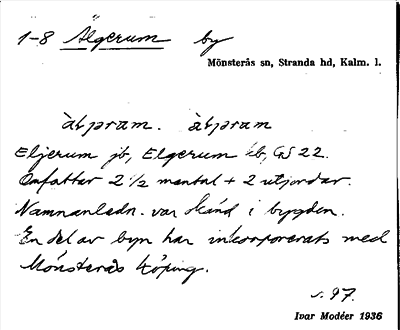 1-8 Älgerum by
Mönsterås sn, Stranda hd, Kalm. l.
Eljerum jb, Elgerum kb, GS 22.
Omfattar 2 1/2 mantal + 2 utjordar.
Namnanledn. var känd i bygden.
En del av byn har inkorporerats med
Mönsterås köping.
s. 97.
Ivar Modéer 1936